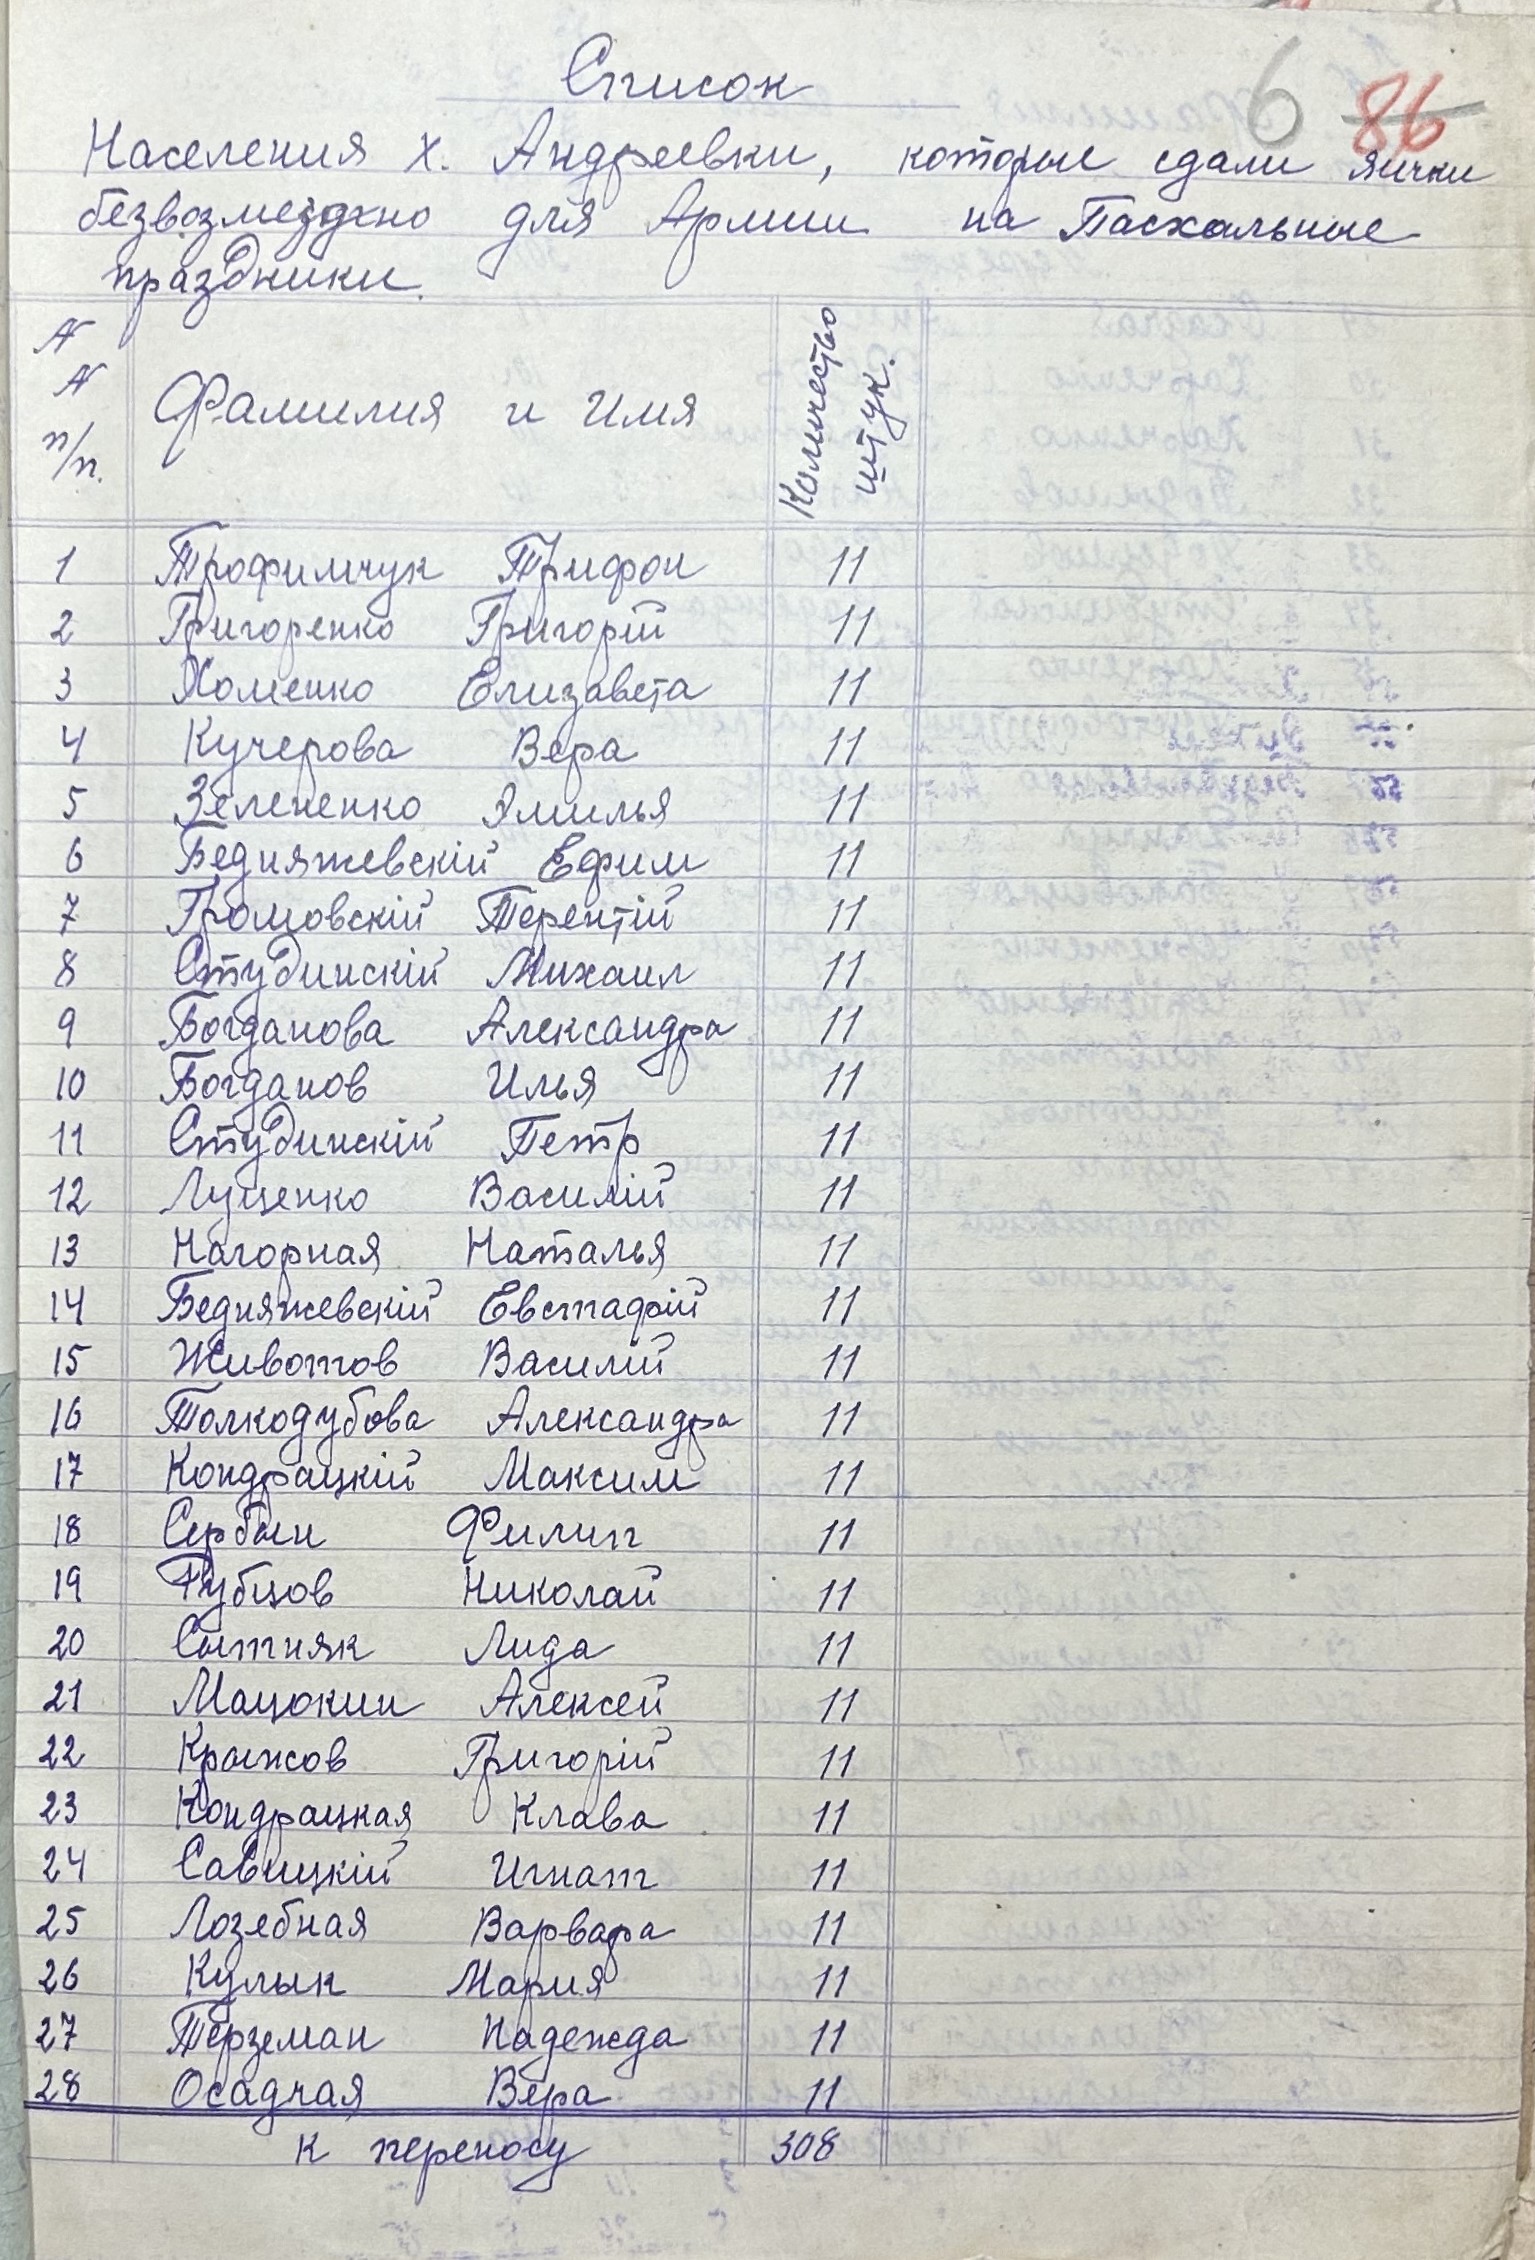 6 86
Список
Населения х. Андреевки, которые сдали яички
безвозмездно для Армии на Пасхальные
праздники.
N N п/п. Фамилия и Имя Количество штук.
1 Трофимчук Трифон 11
2 Григоренко Григорій 11
3 Хоменко Елизавета 11
4 Кучерова Вера 11
5 Зелененко Эмилья 11
6 Бедняжевскій Ефим 11
7 Громовскій Терентій 11
8 Студинскій Михаил 11
9 Богданова Александра 11
10 Богданов Илья 11
11 Студинскій Петр 11
12 Луценко Василій 11
13 Нагорная Наталья 11
14 Бедняжевскій Евстафій 11
15 Животов Василій 11
16 Толкодубова Александра 11
17 Кондрацкій Максим 11
18 Сербын Филип 11
19 Губцов Николай 11
20 Сытняк Лида 11
21 Мацокин Алексей 11
22 Крыжов Григорій 11
23 Кондрацкая Клава 11
24 Савицкій Игнат 11
25 Лозебная Варвара 11
26 Кулык Мария 11
27 Терземан Надежда 11
28 Осадчая Вера 11
К переносу 308